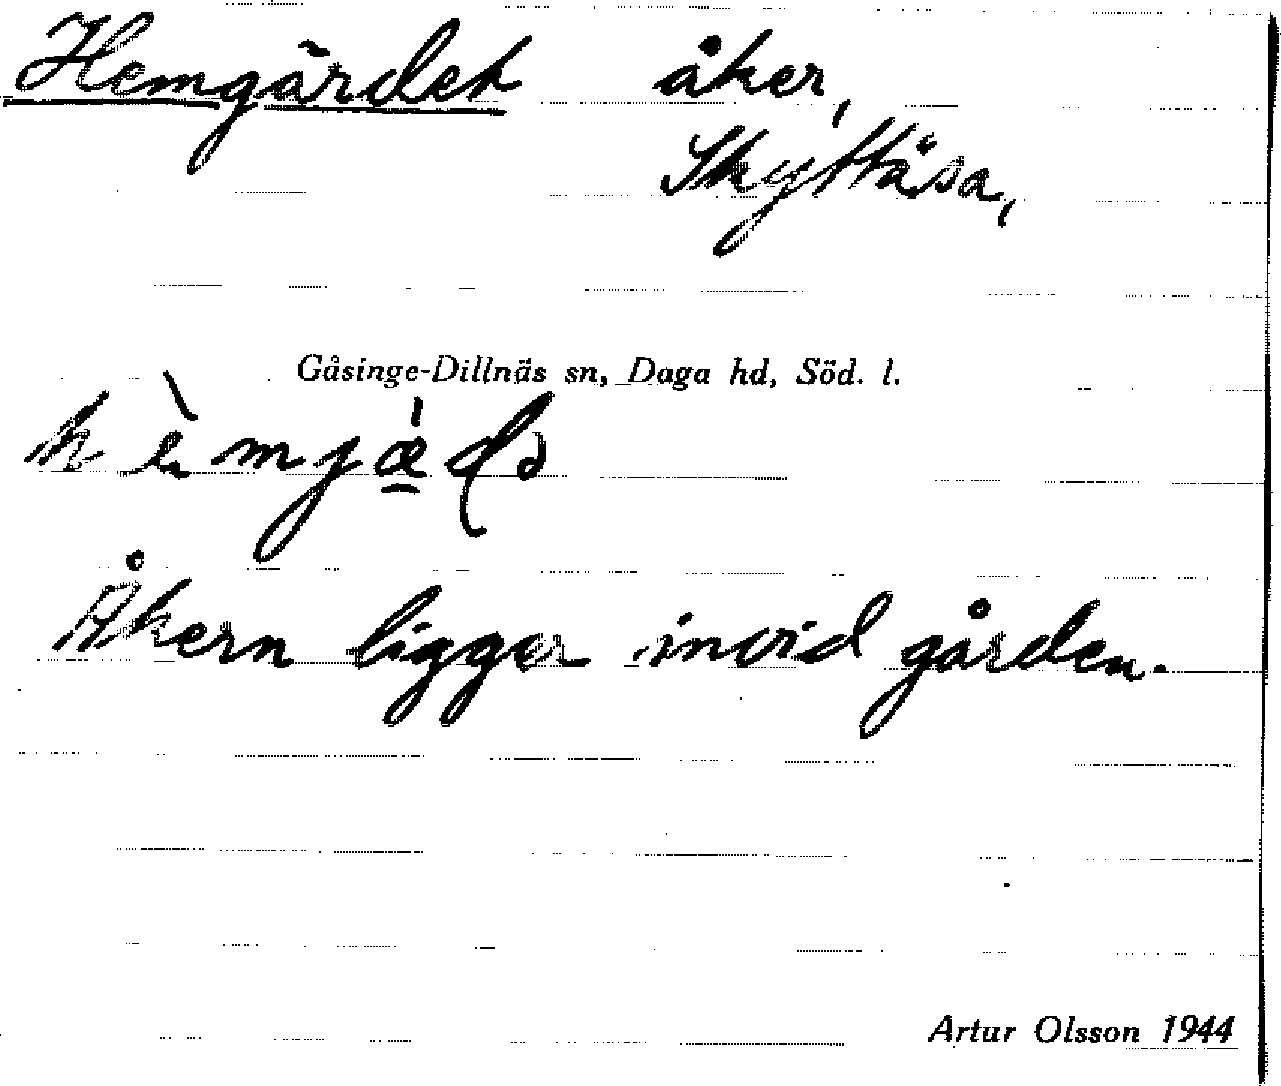 Hemgärdet åker,
Skyttäsa,
Gåsinge-Dillnäs sn, Daga hd, Söd. l.
Åkern ligger invid gården.
Artur Olsson 1944